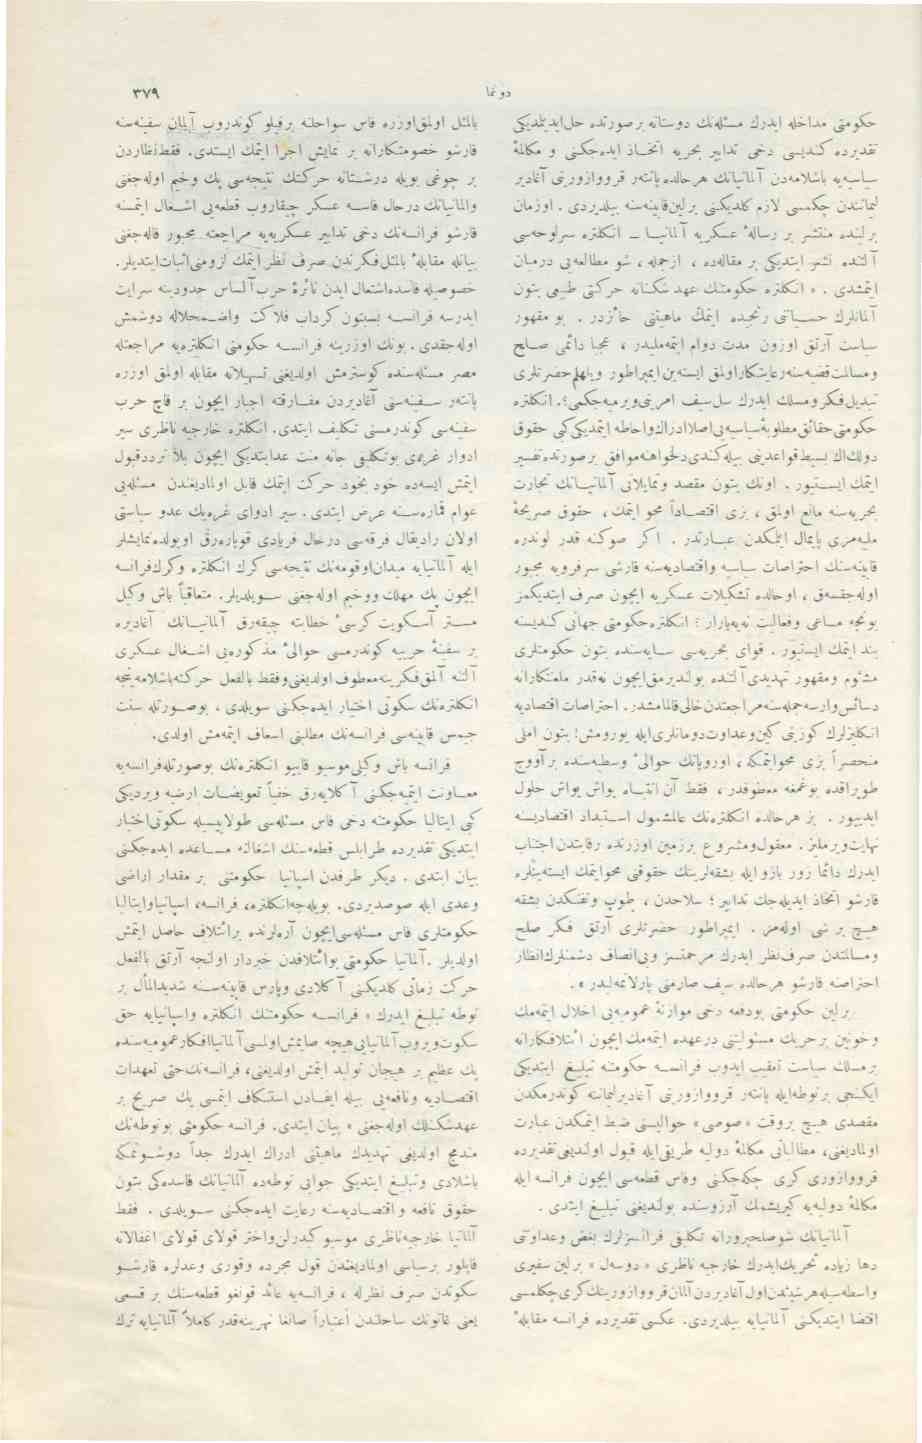 دونما
٣٧٩
حكومتى مداخله ايدرك مسئله‌نك دوستانه بر صورتده حل ايديلمديكى
تقديرده كنديسى دخى تدابير بحريه اتخاذ ايده‌جكنى و مكالمهٔ
سياسيه‌يه باشلامه‌دن آلمانيانك هر حالده پانته‌ر قرووازورينى آغادير
ليمانندن چكمسى لازم كلديكنى برلين قابينه‌سنه بيلديردى . اوزمان
برلينده منتشر بر رسالهٔ عسكريه آلمانيا ـ انكلتره سرلوحه‌سى
آلتنده نشر ايتديكى بر مقاله‌ده ، ازجمله ، شو مطالعه‌يى درميان
ايتمشدى . « انكلتره حكومتنك عهد شكنانه حركتى طبيعى بتون
آلمانلرك حسياتنى رنجيده ايتمك ماهيتنى حائزدر . بو مقهور
سياست آرتق اوزون مدت دوام ايتمه‌مليدر ، عجبا دائمى صلح
ومسالمت قضيه‌سنه رعايتكار اولمق ايسته‌ين ايمپراطور ويلهلم حضرتلرى
تبديل فكر ومسلك ايدرك سل سيف امرينى ويرميه‌جكمى ؟. انكلتره
حكومتى حقائق مطلوبهٔ سياسيه‌يى اصلا ادراك واحاطه ايتمديكى كبى حقوق
دولك اك بسيط قواعدينى بيله كندى دلخواهنه موافق بر صورتده تفسير
ايتمك ايستيور . اونك بتون مقصد وتمايلاتى آلمانيانك تجارت
بحريه‌سنه مانع اولمق ، بزى اقتصاداً محو ايتمك ، حقوق صريحهٔ
مليه‌مزى پايمال ايتمكدن عبارتدر . اكر صوكنه قدر لوندره
قابينه‌سنك احتراصات سياسيه واقتصاديه‌سنه قارشى سرفرويه مجبور
اوله‌جقسه‌ق ، اوحالده تشكيلات عسكريه ايچون صرف ايتديكمز
بونجه مساعى وفعاليت نه‌يه يارار : انكلتره حكومتى جهانى كنديسنه
بند ايتمك ايستيور . قواى بحريه‌سى سايه‌سنده بتون حكومتلرى
مشئوم ومقهور تهديدى آلتنده بولنديرمق ايچون نه‌قدر ملعنتكارانه
دسائس وارسه جمله‌سنه مراجعتدن خالى قالمامشدر . احتراصات اقتصاديه
انكليزلرك كوزينى كين وعداوت دومانلرى ايله بورومش ! بتون املى
منحصراً بزى محو ايتمكه ، اوروپانك حوالئ وسطيه‌سنده بر آووج
طوپراقده بوغمغه معطوفدر ، فقط آن انتباه يواش يواش حلول
ايدييور . بز هر حالده انكلتره‌نك عالمشمول استبداد اقتصاديسنه
نهايت ويرملى‌يز . معقول ومشروع برزمين اوزرنده رقابتدن اجتناب
ايدرك دائما زور بازو ايله بشقه‌لرينك حقوقنى محو ايتمك ايسته‌ينلره
قارشو اتخاذ ايديله‌جك تدابير ؛ سلاحدن ، طوپ وتفنكدن بشقه
هيچ بر شى اوله‌مز . ايمپراطور حضرتلرى آرتق فكر صلح
ومسالمتدن صرف نظر ايدرك مرحمتسز وبى‌انصاف دشمنلرك انظار
احتراصنه قارشو هر حالده سيف صارمنى پارلاتمه‌ليدر » .
برلين حكومتى بودفعه دخى موازنهٔ عموميه‌يى اخلال ايتمه‌مك
وخونين بر حربك مسئوليتنى درعهده ايتمه‌مك ايچون ائتلافكارانه
برمسلك سياست تعقيب ايدوب فرانسه حكومتنه تبليغ ايتديكى
ايكنجى برنوطه‌ايله پانته‌ر قرووازورينى آغادير ليماننه كوندرمكدن
مقصدى هيچ بروقت « صوصى » حواليسنى ضبط ايتمكدن عبارت
اولماديغنى ، مطالباتى مكالمهٔ دوليه طريقى‌ايله قبول اولنديغى تقديرده
قرووازورى كرى چكه‌جكنى وفاس قطعه‌سى ايچون فرانسه ايله
مكالمهٔ دوليه‌يه كيريشمك آرزوسنده بولنديغنى تبليغ ايتدى .
آلمانيانك شو صلحپرورانه تكليفى فرانسزلرك بغض وعداوتنى
دها زياده تحريك ايدرك خارجيه ناظرى « دوسه‌ل » برلين سفيرى
واسطه‌سيله هر شيئدن اول آغاديردن آلمان قرووازورينك كرى چكلمسى
اقتضا ايتديكنى آلمانيايه بيلديردى . عكسى تقديرده فرانسه مقابلهٔ
بالمثل اولمق اوزره فاس سواحلنه برفيلو كوندروب آلمان سفينه‌سنه
قارشو خصومتكارانه بر نمايش اجرا ايتمك ايستدى . فقط نظاردن
بر چوغى بويله درشتانه حركتك نتيجه‌سى پك وخيم اوله‌جغنى
وآلمانيانك درحال فاسه عسكر چيقاروب قطعه‌يى اشغال ايتمسنه
قارشو فرانسه‌نك دخى تدابير عسكريه‌يه مراجعته مجبور قاله‌جغنى
بيانله مقابلهٔ بالمثل فكرندن صرف نظر ايتمك لزومنى اثبات ايتديلر .
خصوصيله فاسده اشتعال ايدن نائرهٔ حرب آلساس حدودينه سرايت
ايدرسه فرانسه بسبتون كرداب فلاكت واضمحلاله دوشمش
اوله‌جقدى . بونك اوزرينه فرانسه حكومتى انكلتره‌يه مراجعتله
مصر مسئله‌سنده كوسترمش اولديغى تسهيلاته مقابله اولمق اوزره
پانته‌ر سفينه‌سنى آغاديردن مفارقته اجبار ايچون بر قاچ حرب
سفينه‌سى كوندرمسنى تكليف ايتدى . انكلتره خارجيه ناظرى سير
ادوار غره‌ى بوتكليفى جانه منت عد ايتديكى ايچون بلا تردد قبول
ايتمش ايسه‌ده خود بخود حركت ايتمك قابل اولماديغندن مسئله‌يى
عوام قماره‌سنه عرض ايتدى . سير ادواى غره‌يك عدو سياستى
اولان راديقال فرقه‌سى درحال فريادى قوپاره‌رق اويولده نمايشلر
ايله آلمانيايه ميدان اوقومه‌نك نتيجه‌سى كرك انكلتره وكرك فرانسه
ايچون پك مهلك ووخيم اوله‌جغنى سويلديلر . متعاقباً باش وكيل
مستر آسكويت كرسئ خطابته چيقه‌رق آلمانيانك آغاديره
بر سفينهٔ حربيه كوندرمسى حوالئ مذكوره‌يى اشغال عسكرى
آلتنه آلمق فكرينه معطوف اولديغنى وفقط بالفعل حركته باشلامه‌ينجه
انكلتره‌نك سكوتى اختيار ايده‌جكنى سويلدى ، بوصورتله سنت
جيمس قابينه‌سى فرانسه‌نك مطلبنى اسعاف ايتمه‌مش اولدى .
فرانسه باش وكيلى موسيو قايبو انكلتره‌نك بوصورتله فرانسه‌يه
معاونت ايتميه‌جكنى آكلايه‌رق خفياً تعويضات ارضيه ويرديكى
كبى ايتاليا حكومته دخى فاس مسئله‌سى طولايسيله سكوتى اختيار
ايتديكى تقديرده طرابلس قطعه‌سنك اشغالنه مساعده ايده‌جكنى
بيان ايتدى . ديكر طرفدن اسپانيا حكومتنى بر مقدار اراضى
وعدى ايله صوصديردى . بويله‌جه انكلتره ، فرانسه ، اسپانيا وايتاليا
حكومتلرى فاس مسئله‌سى ايچون آره‌لرنده بر ائتلاف حاصل ايتمش
اولديلر . آلمانيا حكومتى بو ائتلافدن خبردار اولنجه آرتق بالفعل
حركت زمانى كلديكنى آكلادى وپارس قابينه‌سنه شديدالمأل بر
نوطه تبليغ ايدرك « فرانسه حكومتنك انكلتره واسپانيايه حق
سكوت ويروب آلمانيايى هيچه صايمش اولمسى آلمانيا افكار عموميه‌سنده
پك عظيم بر هيجان توليد ايتمش اولديغنى ، فرانسه‌نك حتى تعهدات
اقتصاديه ونافعه‌يى بيله ايفادن استنكاف ايتمسى پك صريح بر
عهدشكنلك اوله‌جغنى » بيان ايتدى . فرانسه حكومتى بو نوطه‌نك
مندمج اولديغى تهديدك ماهيتنى ادراك ايدرك جداً دوشونمكه
باشلادى وتبليغ ايتديكى جوابى نوطه‌ده آلمانيانك فاسده‌كى بتون
حقوق نافعه واقتصاديه‌سنه رعايت ايده‌جكنى سويلدى . فقط
آلمانيا خارجيه ناظرى موسيو كيدرلن واختر قولاى قولاى اغفالاته
قاپلور برسياسى اولماديغندن قول مجرده وقورى وعدلره قارشو
سكوتدن صرف نظرله ، فرانسه‌يه عائد قونغو قطعه‌سنك بر قسمى
يعنى غابونك ساحلندن اعتباراً صانغا نهرينه‌قدر كاملاً آلمانيايه ترك